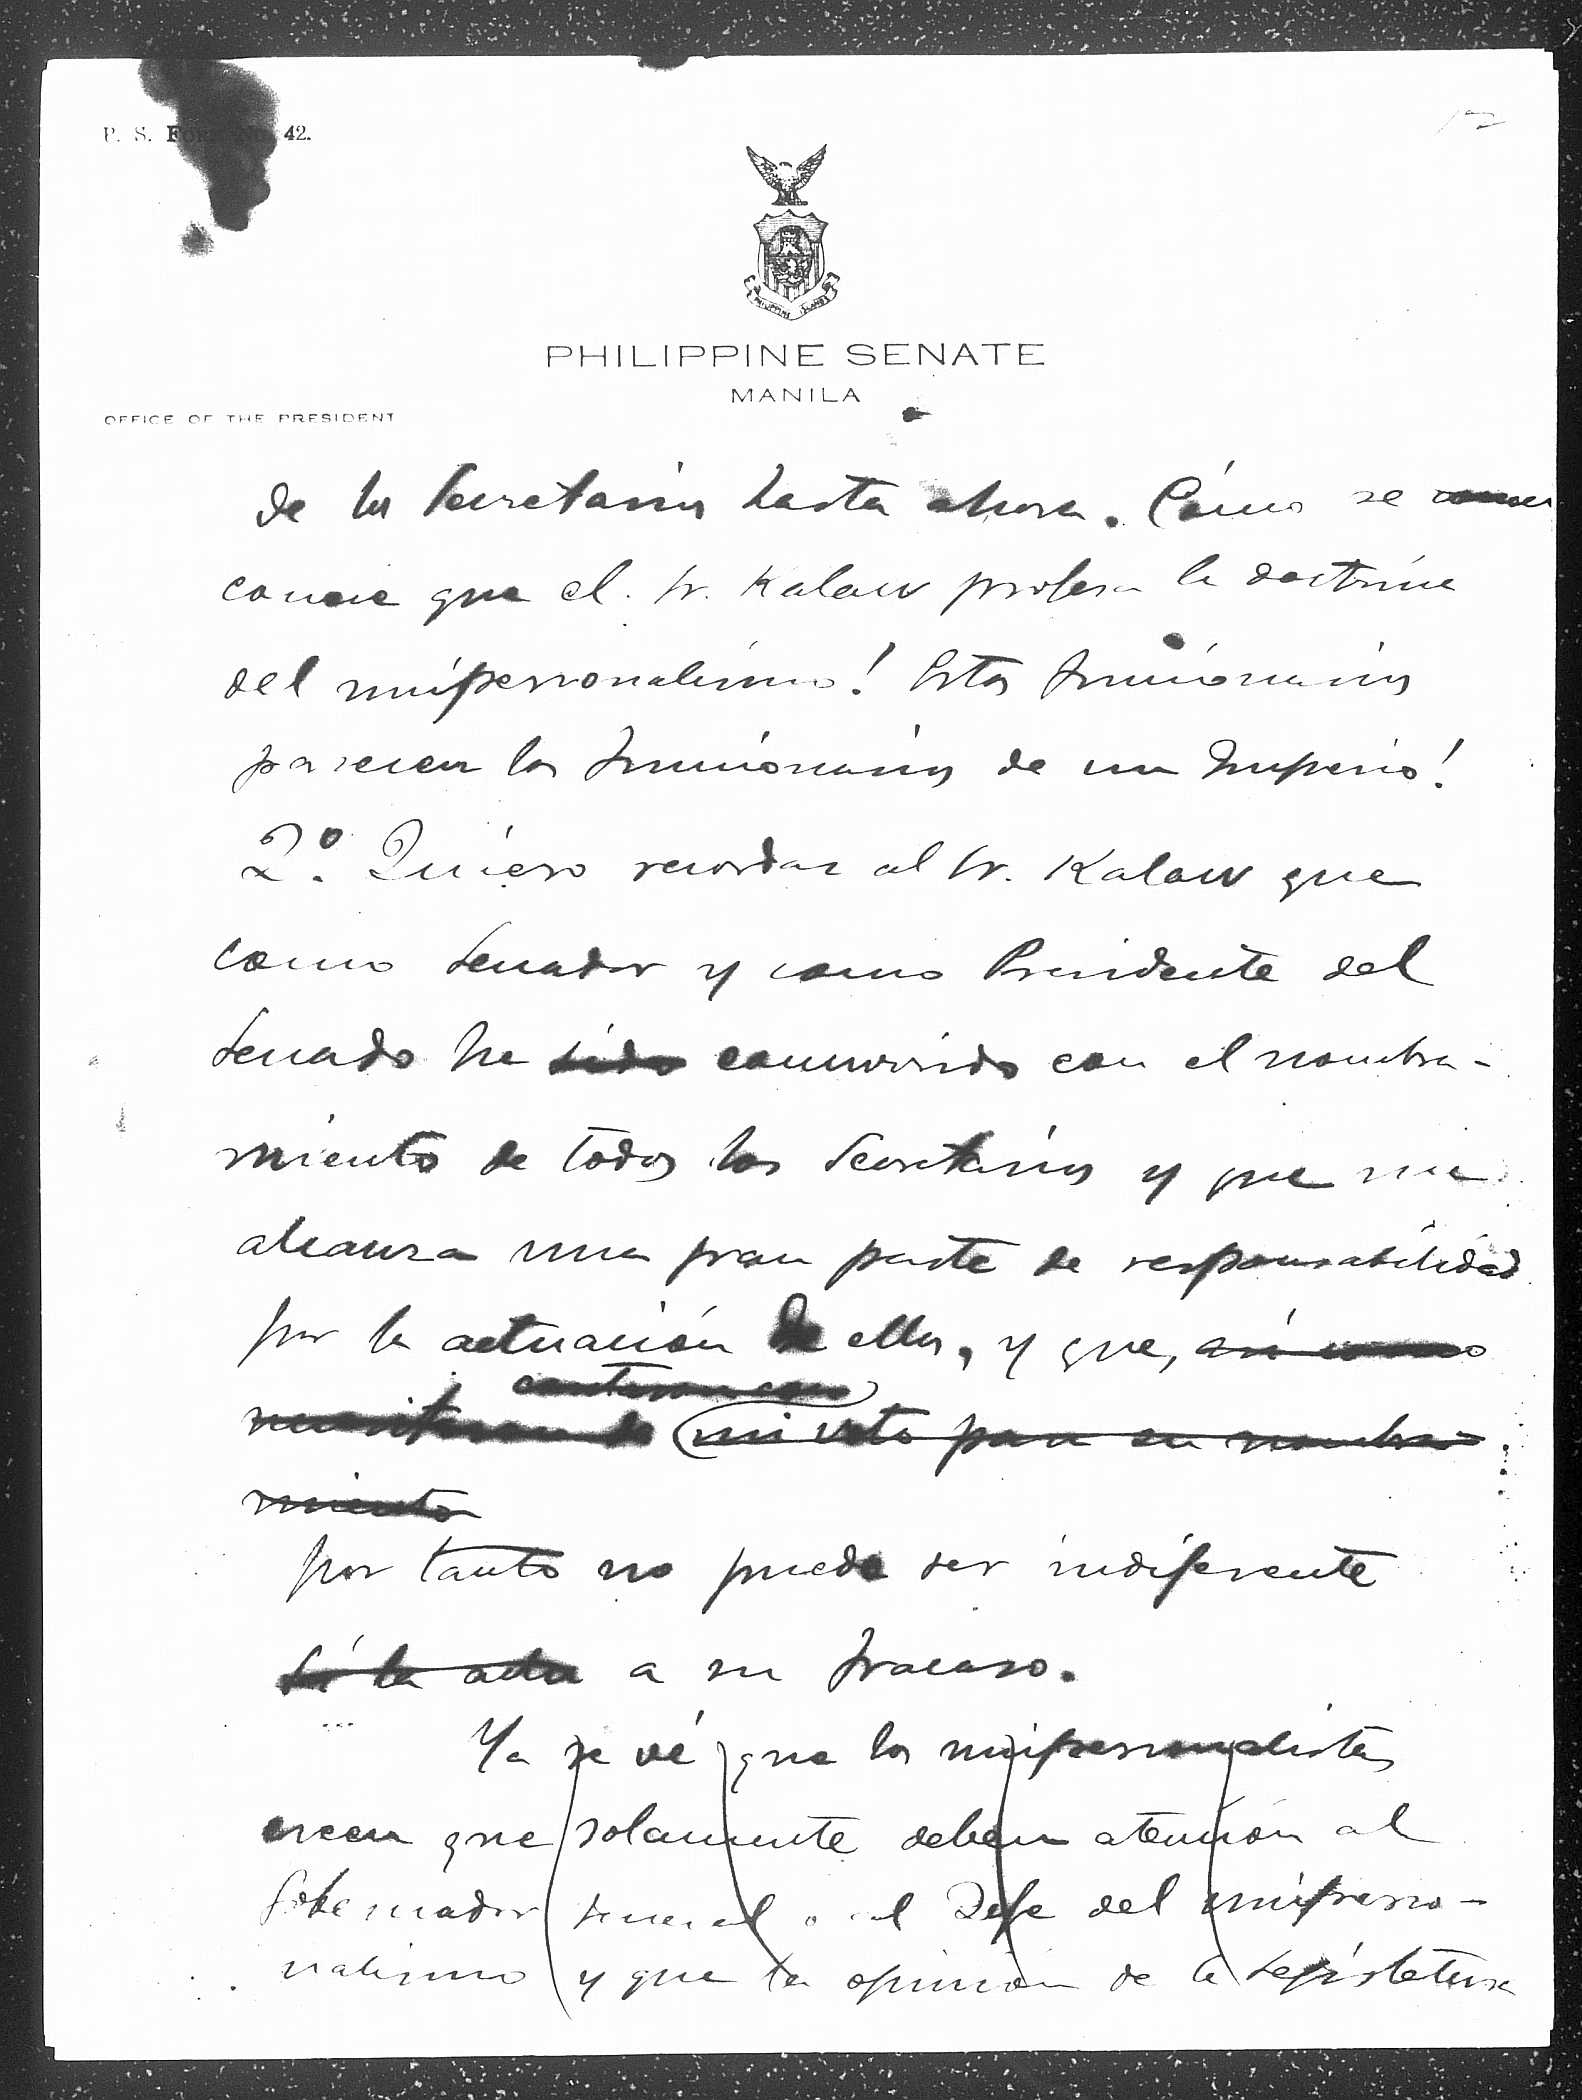 P. S. FORM No. 42.
PHILIPPINE SENATE
MANILA
OFFICE OF THE PRESIDENT
de los Secretarios hasta ahora. Cómo se
conoce que el Sr. Kalaw profesa la doctrina
del unipersonalismo! Estos funcionarios
parecen los funcionarios de un Imperio!
2º. Quiero recordar al Sr. Kalaw que
como Senador y como Presidente del
Senado he sido concurrido con el nombra-
miento de todos los Secretarios y que me
alcanza una gran parte de responsabilidad
por la actuación de ellos, y que, así como
mi veto para su nombra-
miento
por tanto no puedo ser indiferente
si la actu a su fracaso.
Ya se vé que los unipersonalistas
creen que solamente deben atención al
Gobernador General o al Jefe del uniperso-
nalismo y que la opinión de la Legislatura